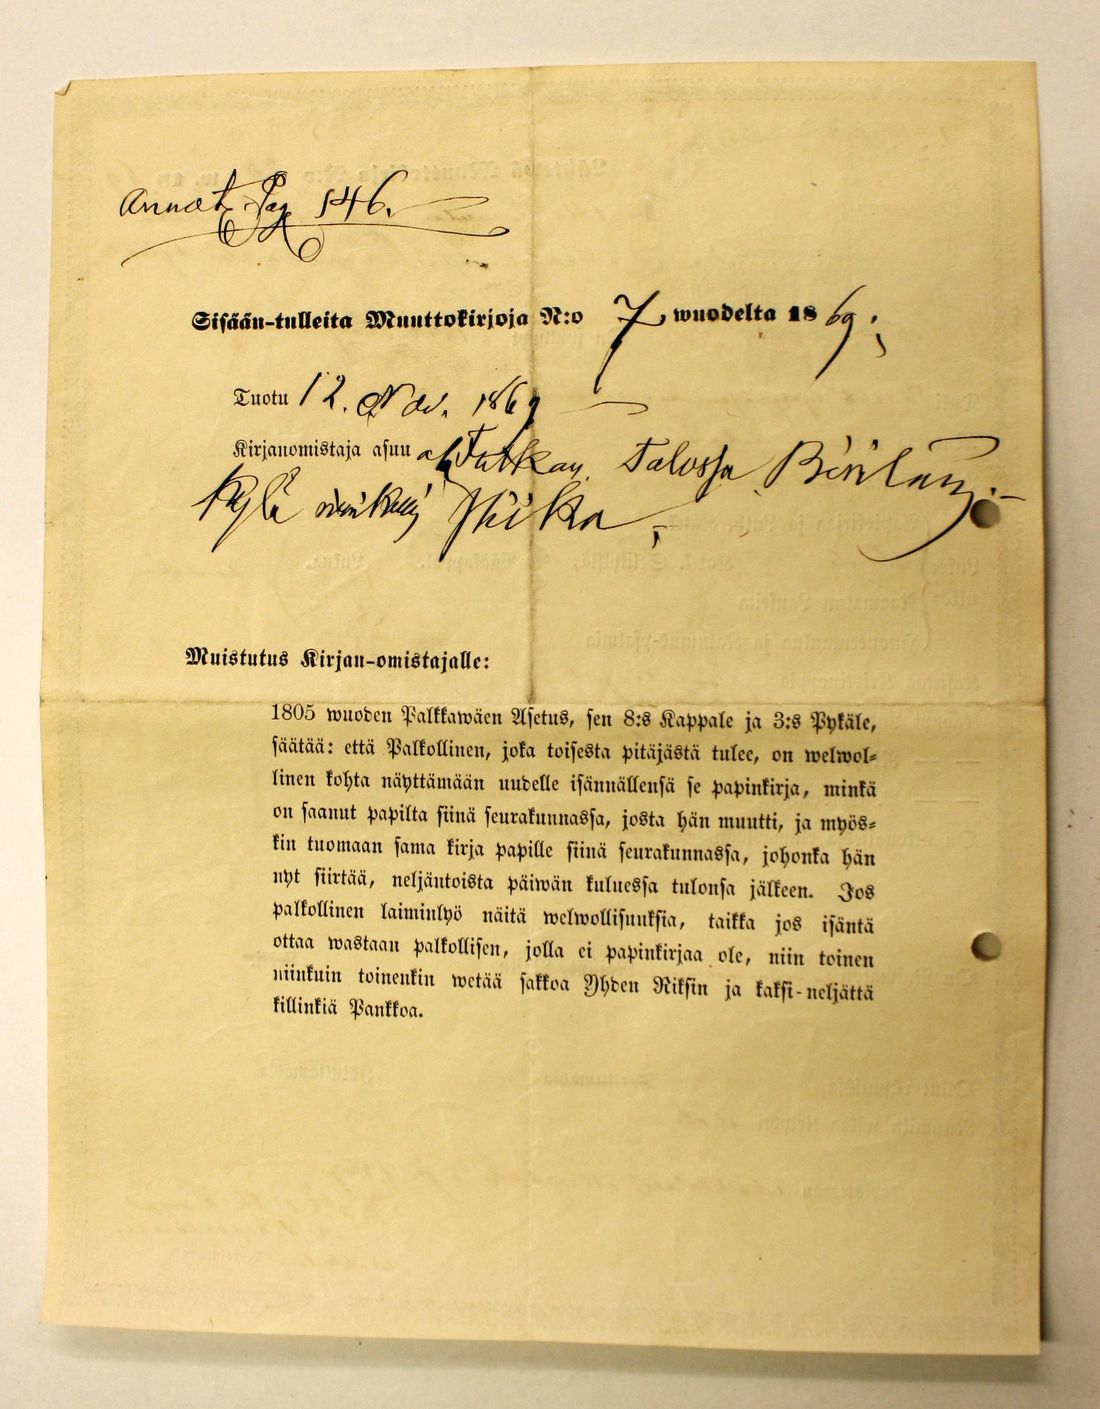 Annot. Pag 146.
Sisään-tulleita Muuttokirjoja N:o 7 wuodelta 1869;
Tuotu 12. Nov. 1869
Kirjanomistaja asuu Talossa
Kylä
Muistutus Kirjan-omistajalle:
1805 wuoden Palkkawäen Asetus, sen 8:s Kappale ja 3:s Pykäle,
säätää: että Palkollinen, joka toisesta pitäjästä tulee, on welwol-
linen kohta näyttämään uudelle isännällensä se papinkirja, minkä
on saanut papilta siinä seurakunnassa, josta hän muutti, ja myös-
kin tuomaan sama kirja papille siinä seurakunnassa, johonka hän
nyt siirtää, neljäntoista päiwän kuluessa tulonsa jälkeen. Jos
palkollinen laiminlyö näitä welwollisuuksia, taikka jos isäntä
ottaa wastaan palkollisen, jolla ei papinkirjaa ole, niin toinen
niinkuin toinenkin wetää sakkoa Yhden Riksin ja kaksi-neljättä
killinkiä Pankkoa.